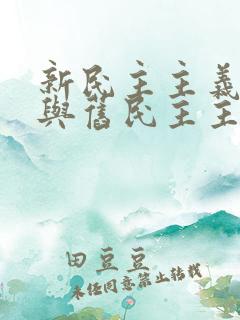 新民主主義
與舊民主主
田豆豆
未经同意禁止转载